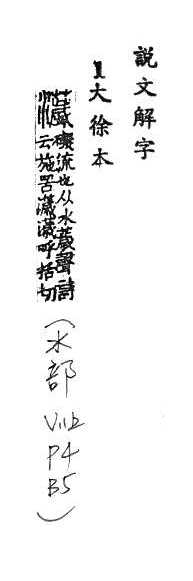 説文解字
1大徐本
礙流也从水薉聲詩
云施罟濊濊呼括切
(水部 V11上 P4 B5)